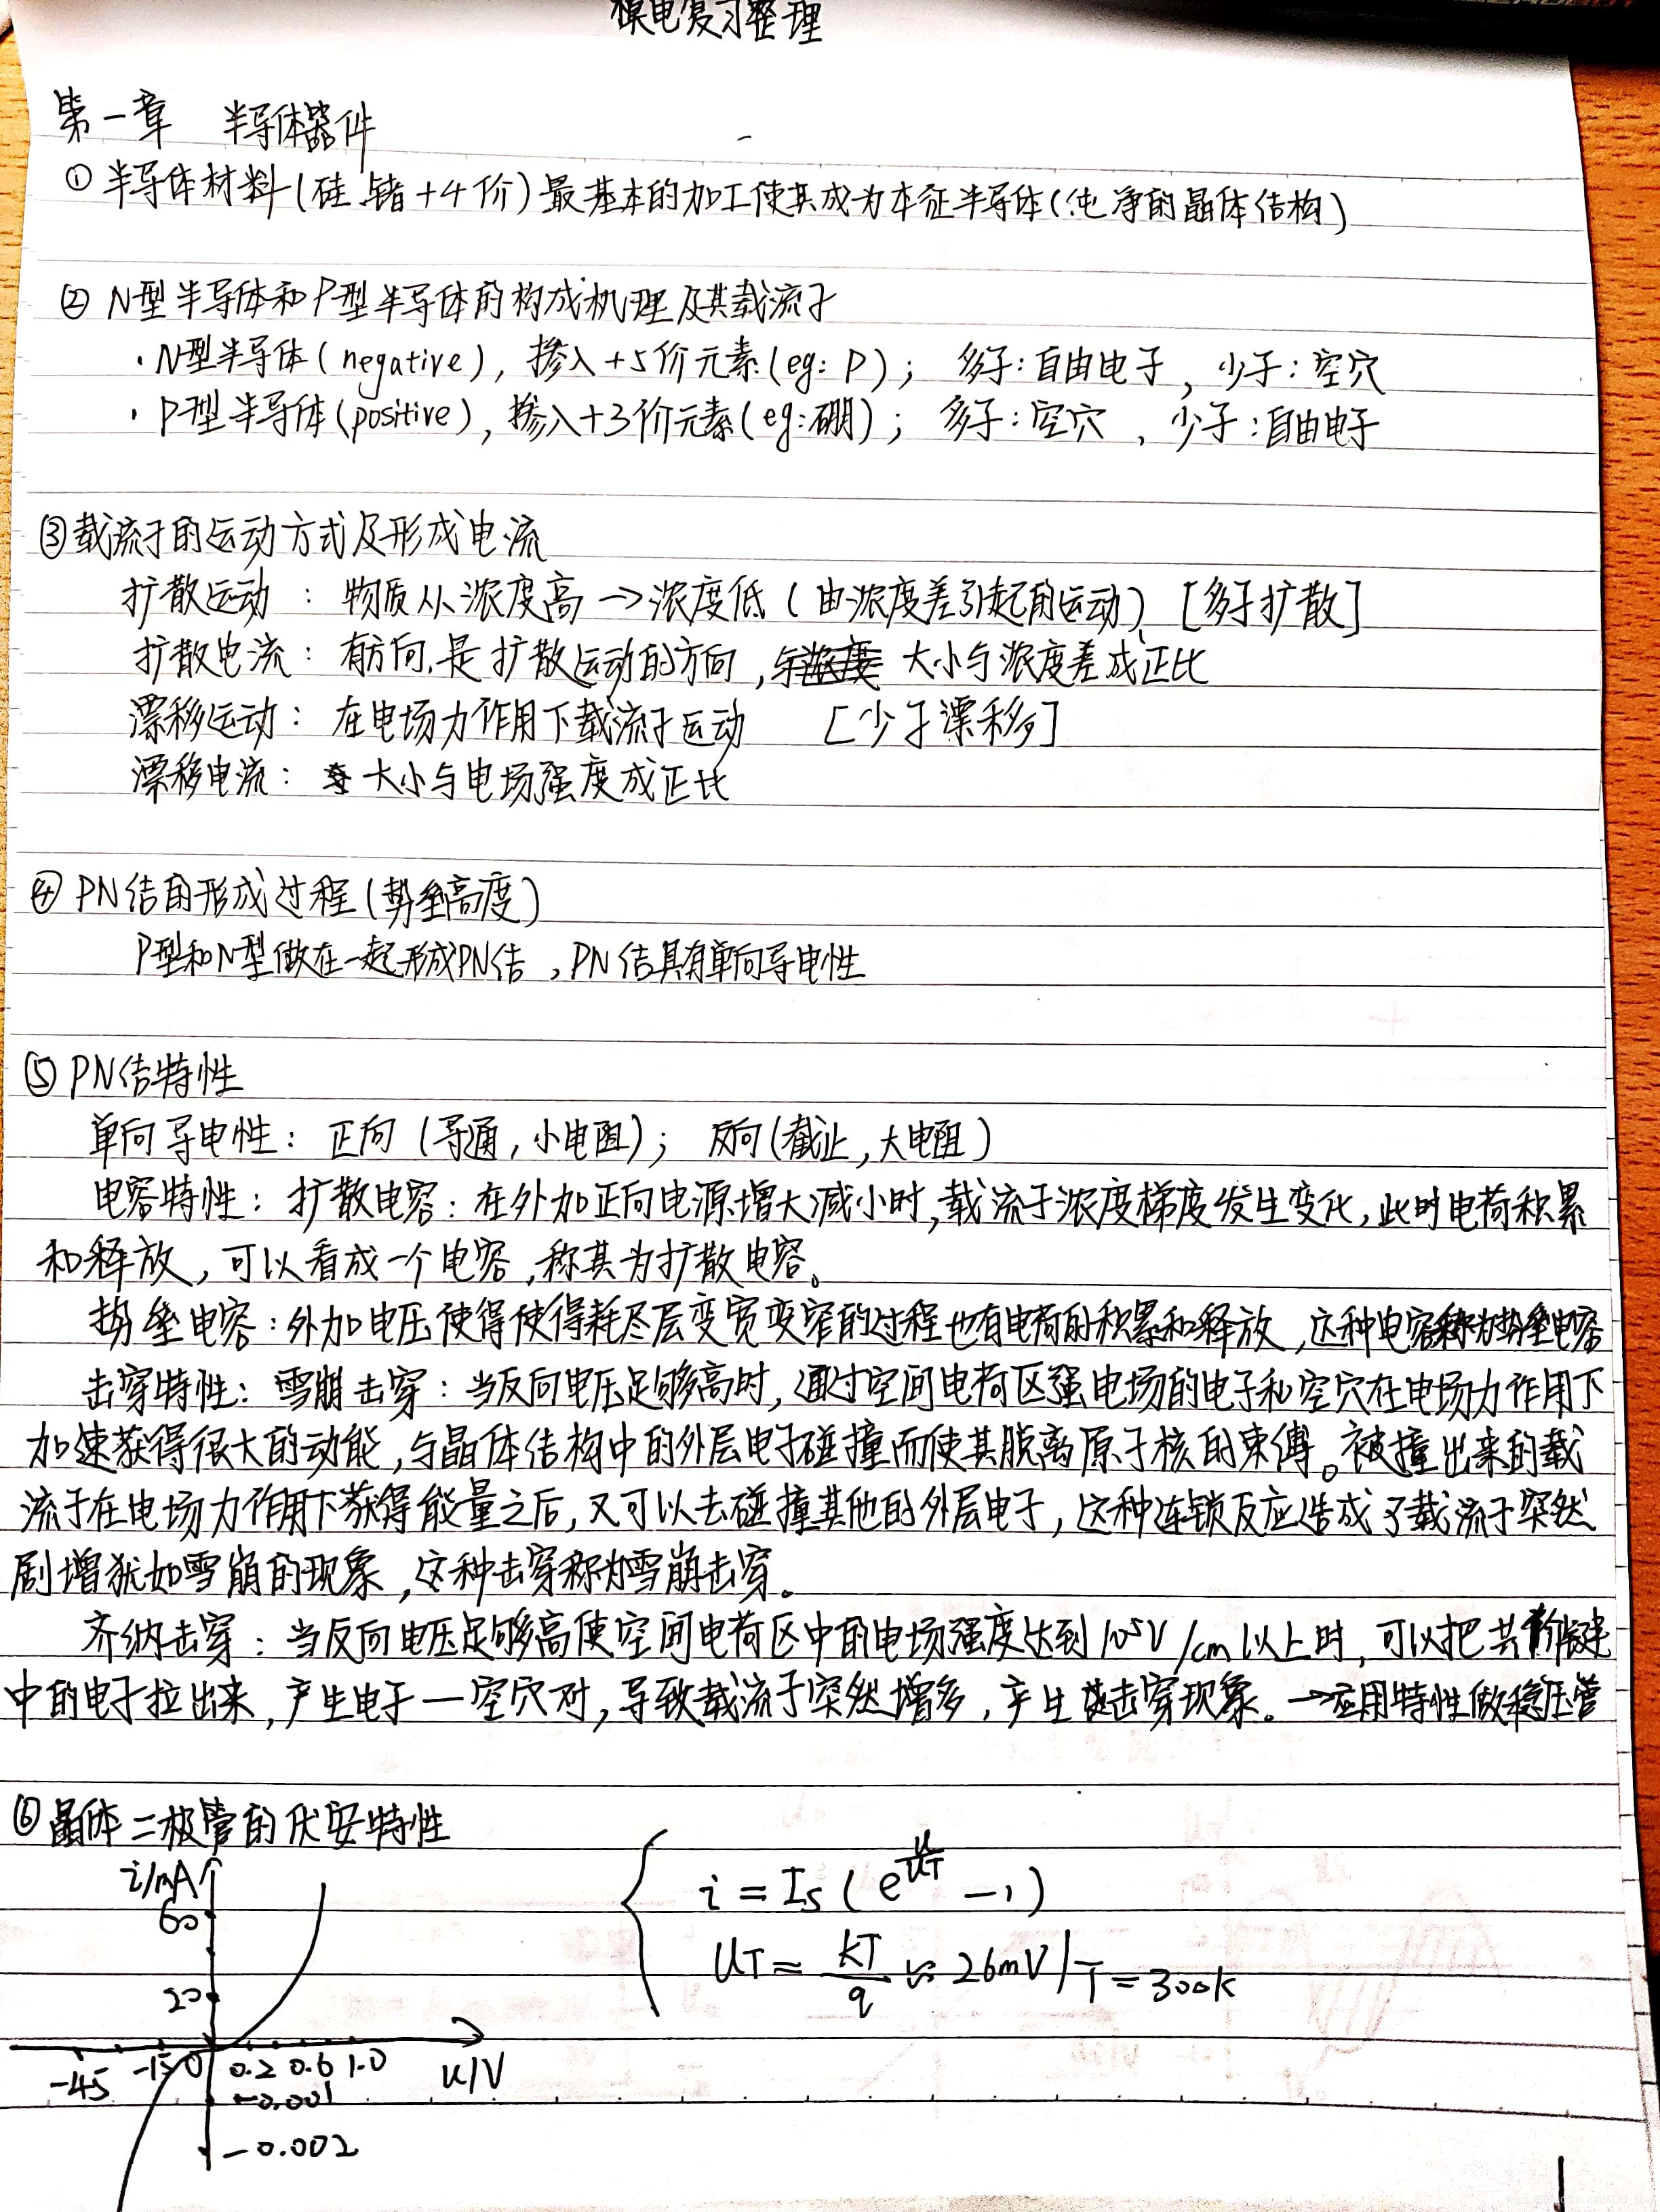 模电复习整理
第一章 半导体器件
① 半导体材料(硅 锗 +4价)最基本的加工使其成为本征半导体(纯净的晶体结构)
② N型半导体和P型半导体的构成机理及其载流子
·N型半导体(negative), 掺入+5价元素(eg: P); 多子:自由电子, 少子:空穴
·P型半导体(positive), 掺入+3价元素(eg:硼); 多子:空穴, 少子:自由电子
③载流子的运动方式及形成电流
扩散运动: 物质从浓度高→浓度低(由浓度差引起的运动) [多子扩散]
扩散电流: 有方向,是扩散运动的方向, 大小与浓度差成正比
漂移运动: 在电场力作用下载流子运动 [少子漂移]
漂移电流: 大小与电场强度成正比
④ PN结的形成过程(势垒高度)
P型和N型做在一起形成PN结,PN结具有单向导电性
⑤ PN结特性
单向导电性: 正向(导通,小电阻); 反向(截止,大电阻)
电容特性: 扩散电容:在外加正向电源增大减小时,载流子浓度梯度发生变化,此时电荷积累
和释放,可以看成一个电容,称其为扩散电容。
势垒电容:外加电压使得使得耗尽层变宽变窄的过程也有电荷的积累和释放,这种电容称为势垒电容
击穿特性: 雪崩击穿:当反向电压足够高时,通过空间电荷区强电场的电子和空穴在电场力作用下
加速获得很大的动能,与晶体结构中的外层电子碰撞而使其脱离原子核的束缚。被撞出来的载
流子在电场力作用下获得能量之后,又可以去碰撞其他的外层电子,这种连锁反应造成了载流子突然
剧增犹如雪崩的现象,这种击穿称为雪崩击穿。
齐纳击穿:当反向电压足够高使空间电荷区中的电场强度达到10⁵V/cm以上时,可以把共价键
中的电子拉出来,产生电子—空穴对,导致载流子突然增多,产生击穿现象。→应用特性做稳压管
⑥晶体二极管的伏安特性
i/mA
60
20
-45 -15 0 0.2 0.6 1.0 u/V
-0.001
-0.002
i = Is(e^(u/UT) - 1)
UT = kT/q ≈ 26mV|T=300K